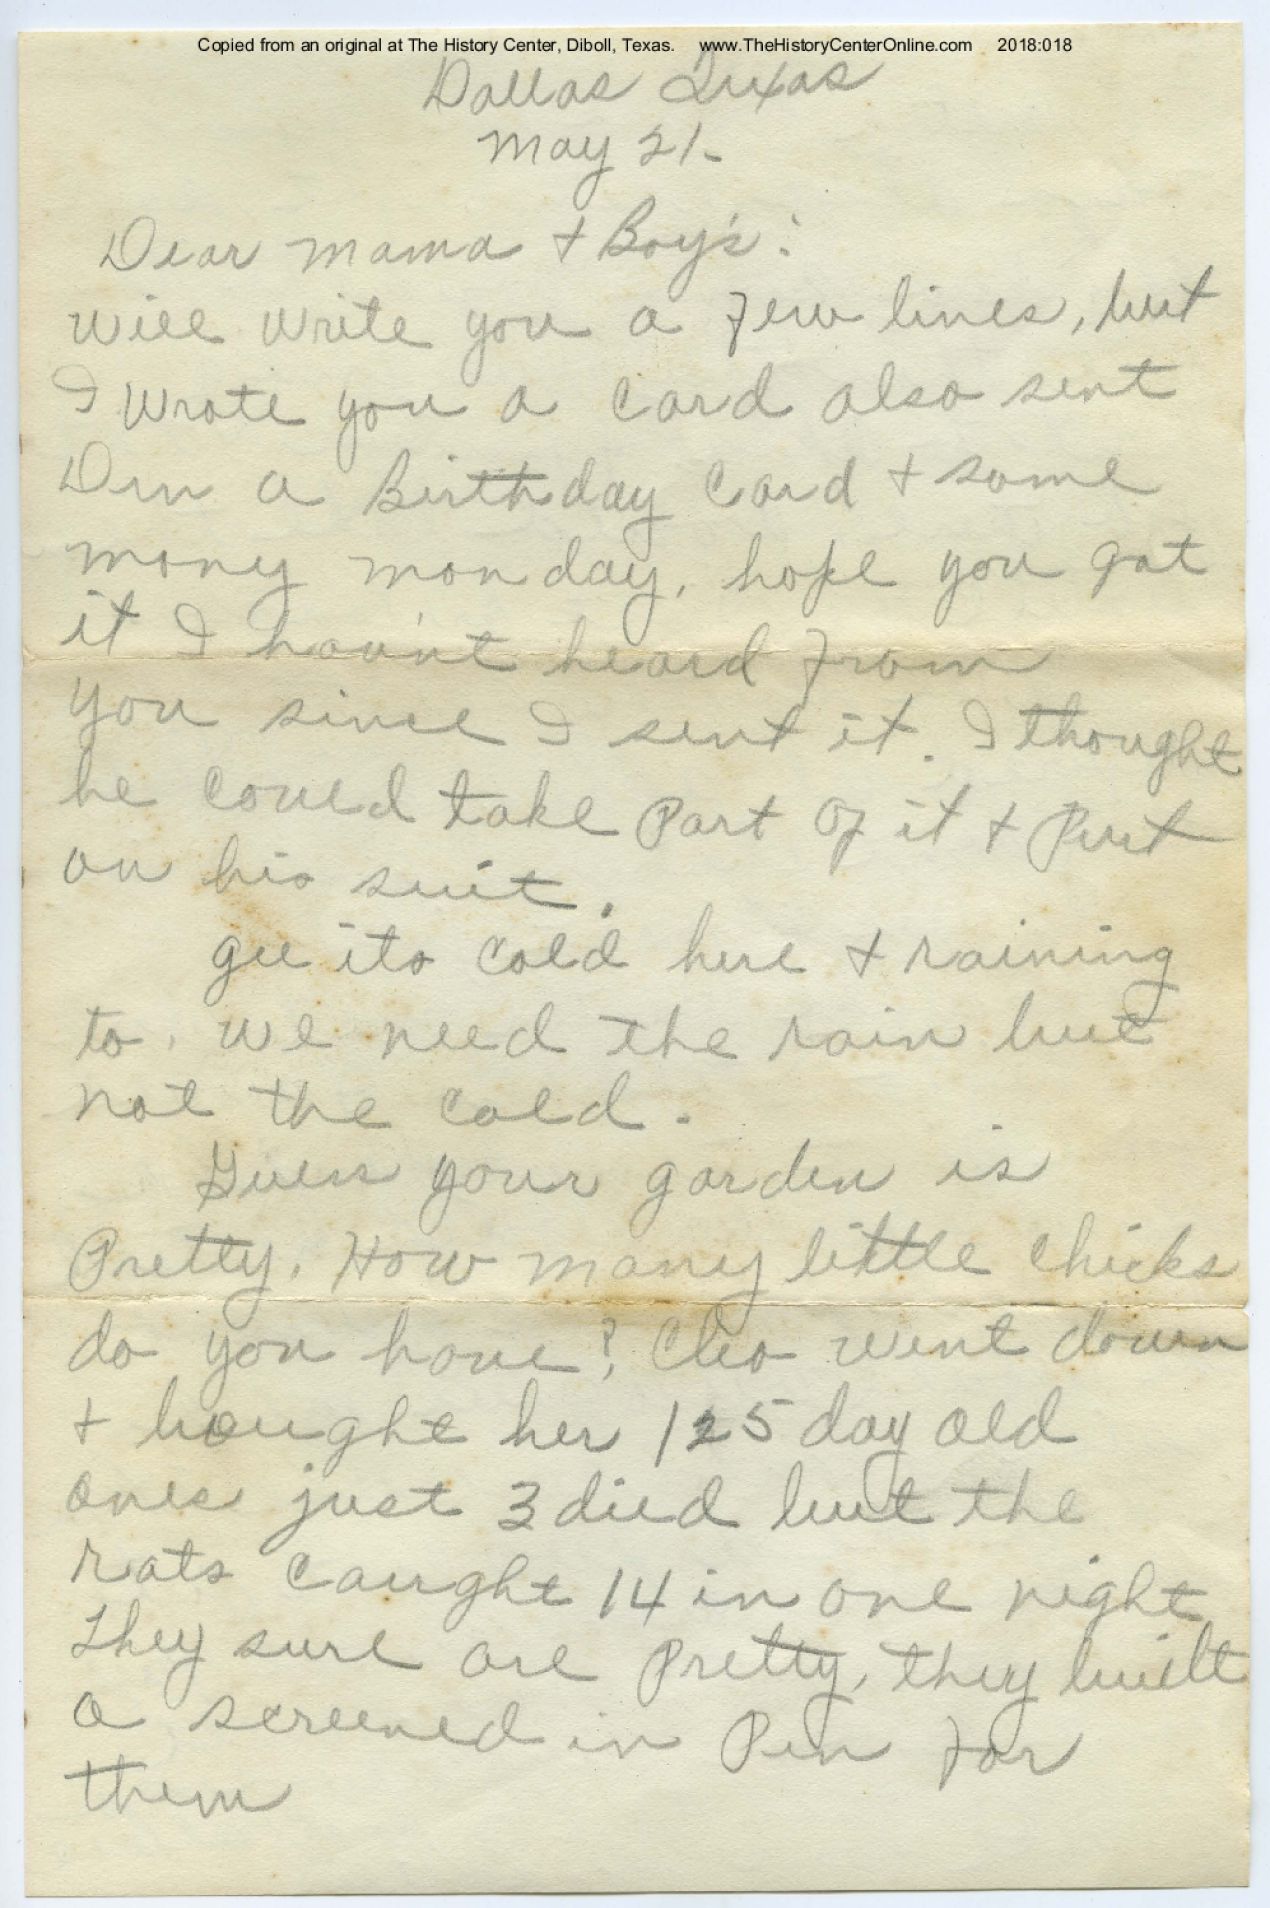 Copied from an original at The History Center, Diboll, Texas. www.TheHistoryCenterOnline.com 2018:018
Dallas Texas
May 21-
Dear Mama + Boy's:
will write you a few lines, but
I wrote you a Card also sent
a Birthday Card + some
mony monday, hope you got
it I hav'nt heard from
you since I sent it. I thought
he could take Part of it + Put
on his suit.
gee its cold here + raining
to, we need the rain but
not the cold.
Guess your garden is
Pretty, How many little chicks
do you have? Cleo went down
+ bought her 125 day old
ones just 3 died but the
rats caught 14 in one night
They sure are Pretty, they built
a screened in Pen for
them